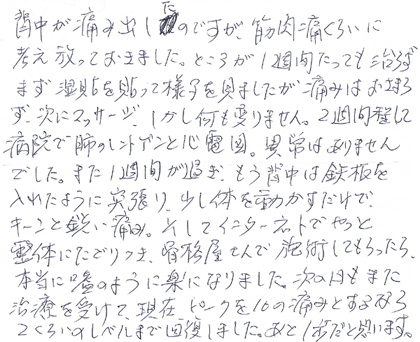 背中が痛み出したのですが、筋肉痛くらいに
考え放っておきました。ところが1週間たっても治らず
まず湿布を貼って様子を見ましたが痛みはおさまら
ず、次にマッサージ、しかし何も変りません。2週間程して
病院で肺のレントゲンと心電図。異常はありません
でした。また1週間が過ぎ、もう背中は鉄板を
入れたように突張り、少し体を動かすだけで
キーンと鋭い痛み。そしてインターネットでやっと
整体にたどりつき、骨格屋さんで施術してもらったら、
本当に嘘のように楽になりました。次の日もまた
治療を受けて、現在、ピークを10の痛みとするなら
2くらいのレベルまで回復しました。あと1歩だと思います。